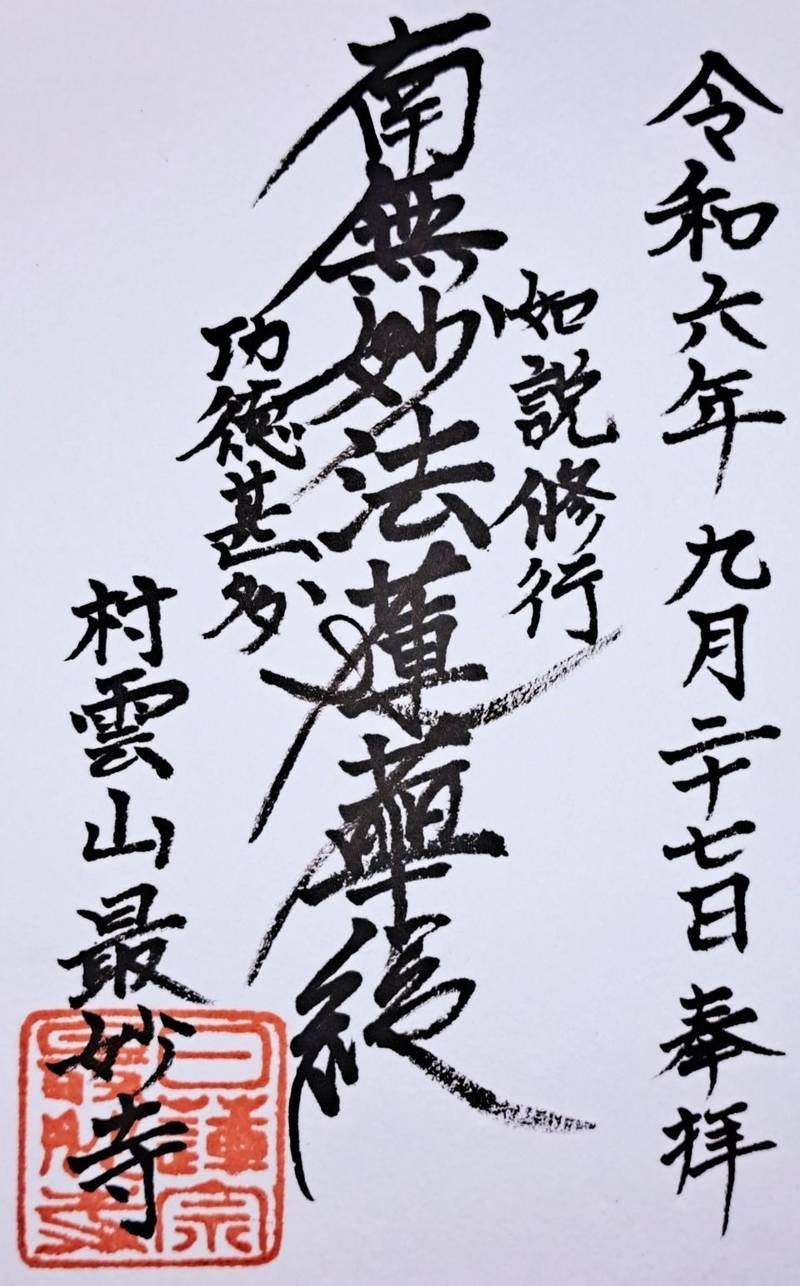 令和六年 九月二十七日 奉拝
如説修行
南無妙法蓮華経
功徳甚多
村雲山最妙寺
日蓮宗
最妙寺